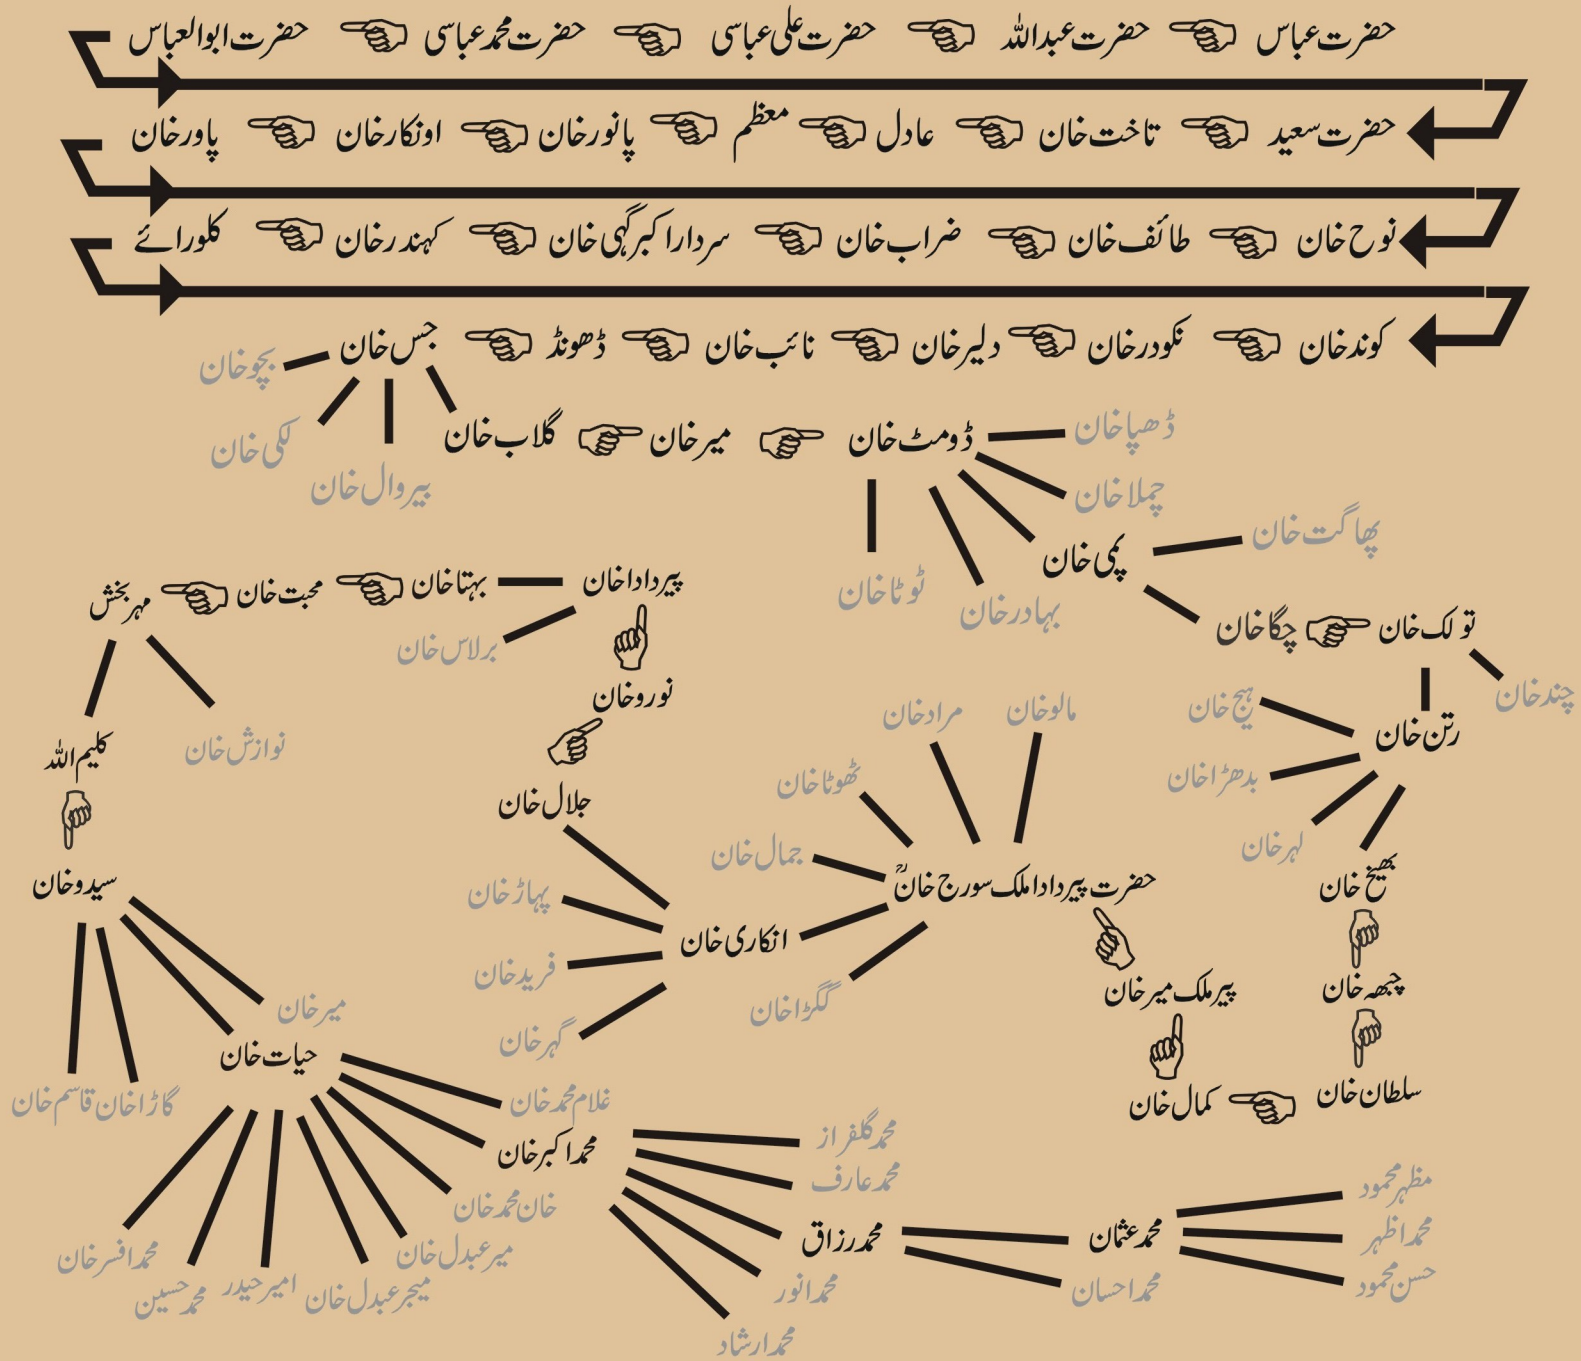 حضرت عباس حضرت عبداللہ حضرت علی عباسی حضرت محمد عباسی حضرت ابوالعباس
حضرت سعید تاخت خان عادل معظم پانور خان اونکار خان پاور خان
نوح خان طائف خان ضراب خان سردار اکبر گہی خان کہندر خان کلورائے
کوند خان نکودر خان دلیر خان نائب خان ڈھونڈ جس خان
بچو خان
لکی خان
بیروال خان
گلاب خان میر خان ڈومٹ خان
ڈھپا خان
چملا خان
پمی خان
بہادر خان
ٹوٹا خان
پھاگت خان
چگا خان تولک خان
چند خان
رتن خان
ہیج خان
بدھڑا خان
لہر خان
بھیخ خان
چبھہ خان
سلطان خان
کمال خان
پیر ملک میر خان
حضرت پیر دادا ملک سورج خانؒ
مالو خان
مراد خان
ٹھوٹا خان
جمال خان
انکاری خان
گگڑا خان
جلال خان
پہاڑ خان
فرید خان
گہر خان
نورو خان
پیر دادا خان
بہتا خان
برلاس خان
محبت خان
مہر بخش
نوازش خان
کلیم اللہ
سیدو خان
میر خان
حیات خان
گاڑا خان
قاسم خان
غلام محمد خان
محمد اکبر خان
خان محمد خان
میر عبدل خان
میجر عبدل خان
امیر حیدر
محمد حسین
محمد افسر خان
محمد گلفراز
محمد عارف
محمد رزاق
محمد انور
محمد ارشاد
محمد عثمان
محمد احسان
مظہر محمود
محمد اظہر
حسن محمود